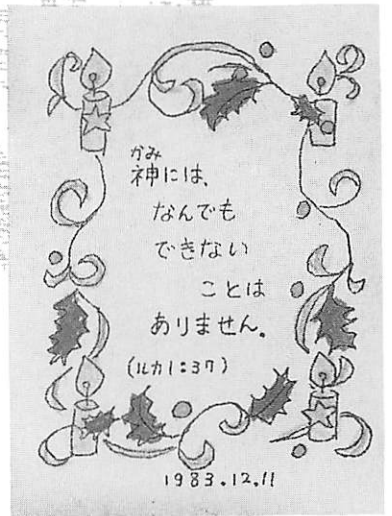 かみ
神には、
なんでも
できない
ことは
ありません。
(ルカ1:37)
1983.12.11